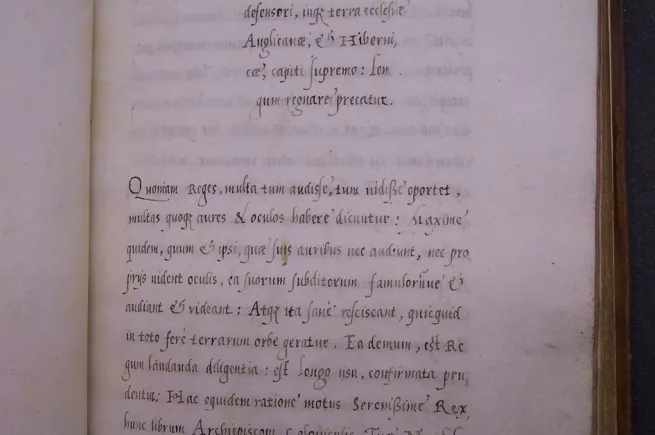 defensori, inqꝫ terra ecclesiæ
Anglicanæ, & Hiberni,
cæ, capiti supremo: lon
gum regnare precatur.
Quoniam Reges, multa tum audisse, tum uidisse oportet,
multas quoqꝫ aures & oculos habere dicuntur: Maxime
quidem, quum & ipsi, quæ suis auribus nec audiunt, nec pro
prijs uident oculis, ea suorum subditorum famulorũue &
audiant & videant: Atqꝫ ita sanè resciscant, quicquid
in toto ferè terrarum orbe geratur. Ea demum, est Re
gum laudanda diligentia: est longo usu, confirmata pru
dentia: Hac equidem ratione motus Serenissime Rex,
hunc librum Archiepiscopi